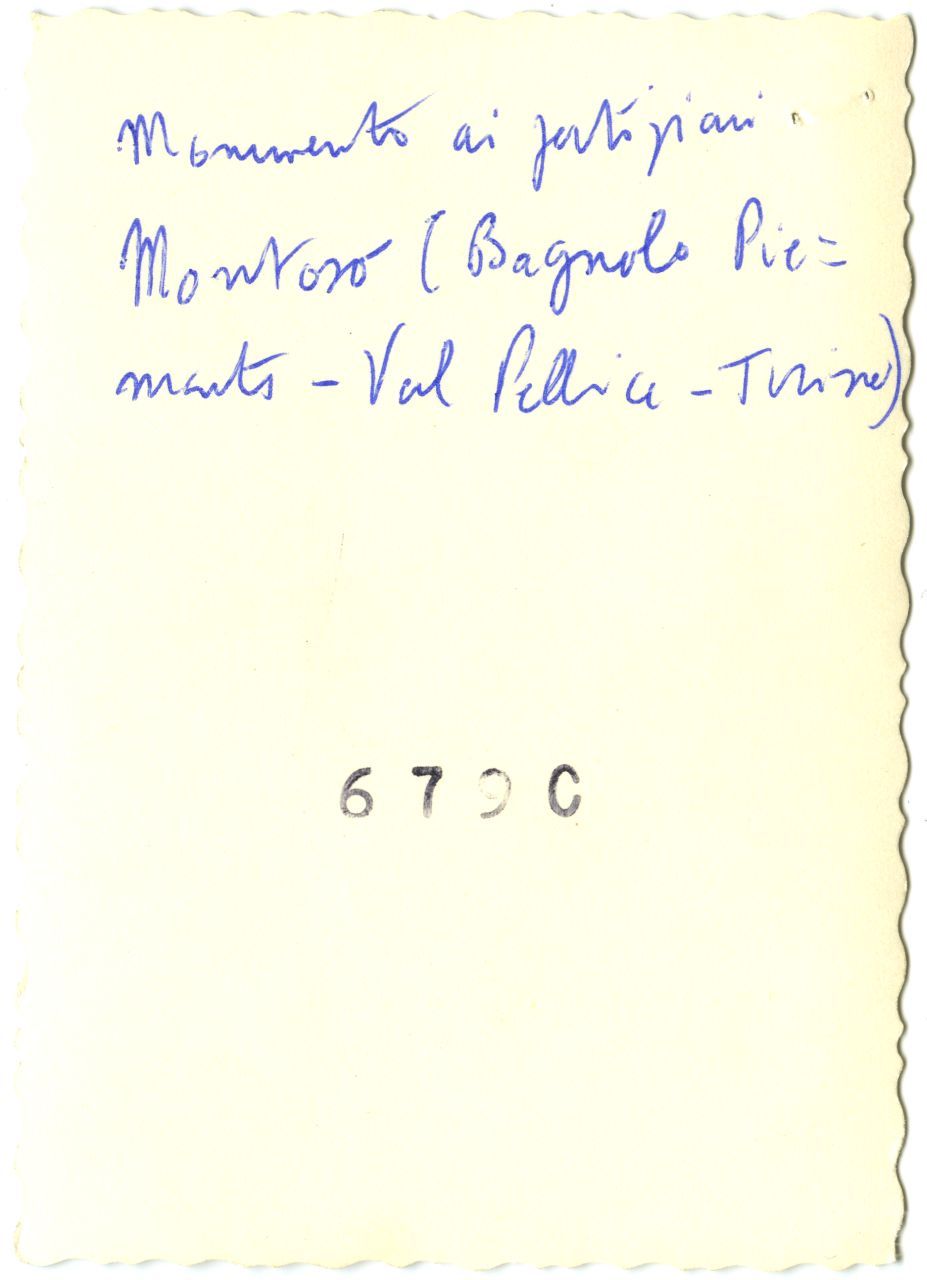 Monumento ai partigiani
Montoso (Bagnolo Pie=
monte - Val Pellice - Torino)
679C